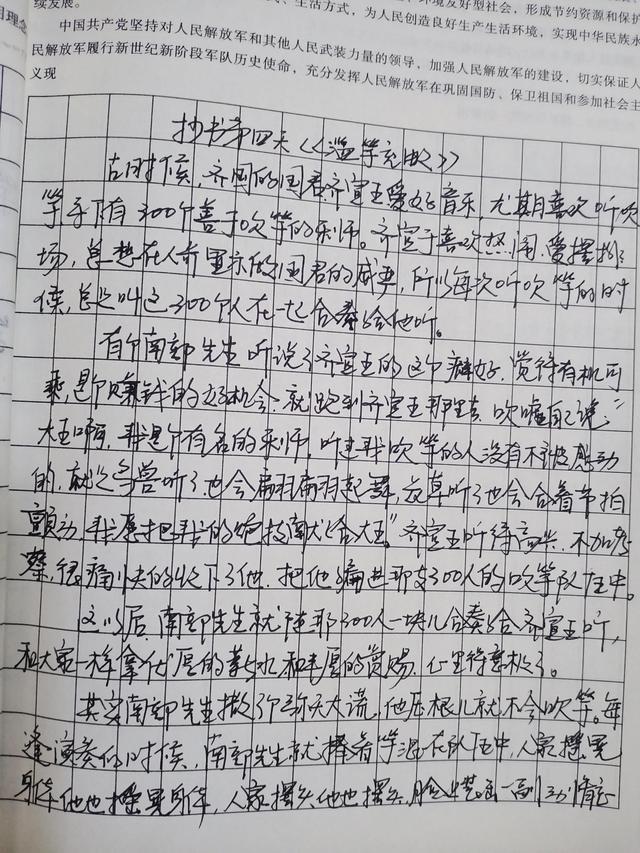 续发展。
、生活方式，为人民创造良好生产生活环境，实现中华民族永
环境友好型社会，形成节约资源和保护
中国共产党坚持对人民解放军和其他人民武装力量的领导，加强人民解放军的建设，切实保证人
民解放军履行新世纪新阶段军队历史使命，充分发挥人民解放军在巩固国防、保卫祖国和参加社会主
义现
抄书第四天《滥竽充数》
古时候，齐国的国君齐宣王爱好音乐，尤其喜欢听吹
竽，手下有300个善于吹竽的乐师。齐宣王喜欢热闹，爱摆排
场，总想在人前显示做国君的威严，所以每次听吹竽的时
候，总是叫这300个人在一起合奏给他听。
有个南郭先生听说了齐宣王的这个癖好，觉得有机可
乘，是个赚钱的好机会，就跑到齐宣王那里去，吹嘘自己说："
大王啊，我是个有名的乐师，听过我吹竽的人没有不被感动
的，就是鸟兽听了也会翩翩起舞，花草听了也会合着节拍
颤动，我愿把我的绝技献给大王。"齐宣王听得高兴，不加考
察，很痛快的收下了他，把他编进那支300人的吹竽队伍中。
这以后，南郭先生就随那300人一块儿合奏给齐宣王听，
和大家一样拿优厚的薪水和丰厚的赏赐，心里得意极了。
其实南郭先生撒了个弥天大谎，他压根儿就不会吹竽。每
逢演奏的时候，南郭先生就捧着竽混在队伍中，人家摇晃
身体他也摇晃身体，人家摆头他也摆头，脸上装出一副动情忘